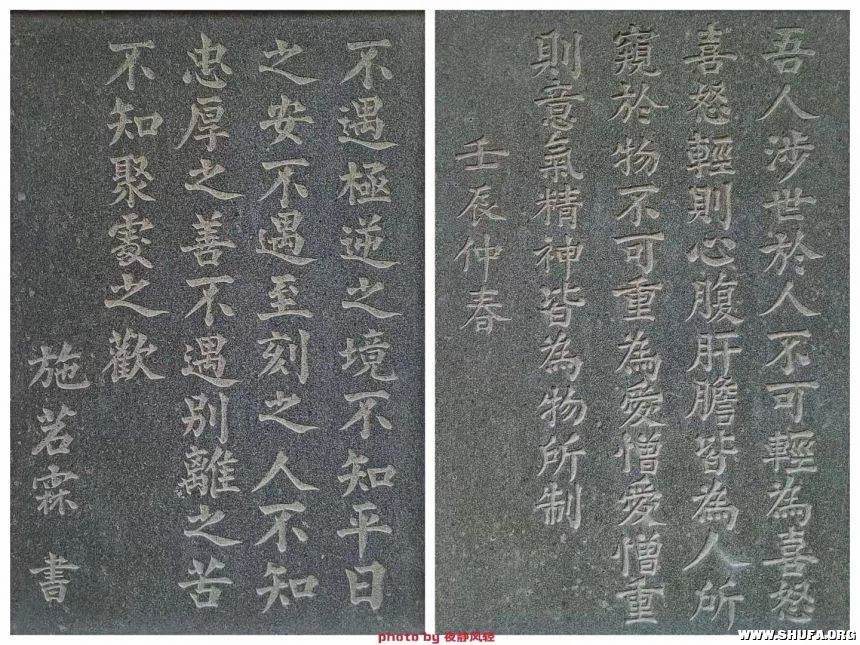 吾人涉世於人不可輕為喜怒
喜怒輕則心腹肝膽皆為人所
窺於物不可重為愛憎愛憎重
則意氣精神皆為物所制
壬辰仲春
不遇極逆之境不知平日
之安不遇至刻之人不知
忠厚之善不遇别離之苦
不知聚處之歡
施茗霖 書
photo by 夜静风轻
WWW.SHUFA.ORG